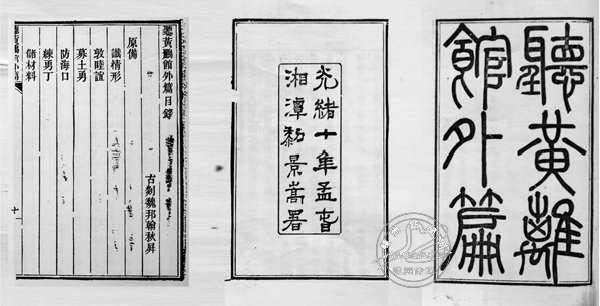 聽黃離
館外篇
光緒十年孟春
湘潭黎景嵩署
聽黃鸝館外篇目錄
古剡魏邦翰秋屏
原備
識情形
敦睦誼
募土勇
防海口
練勇丁
儲材料